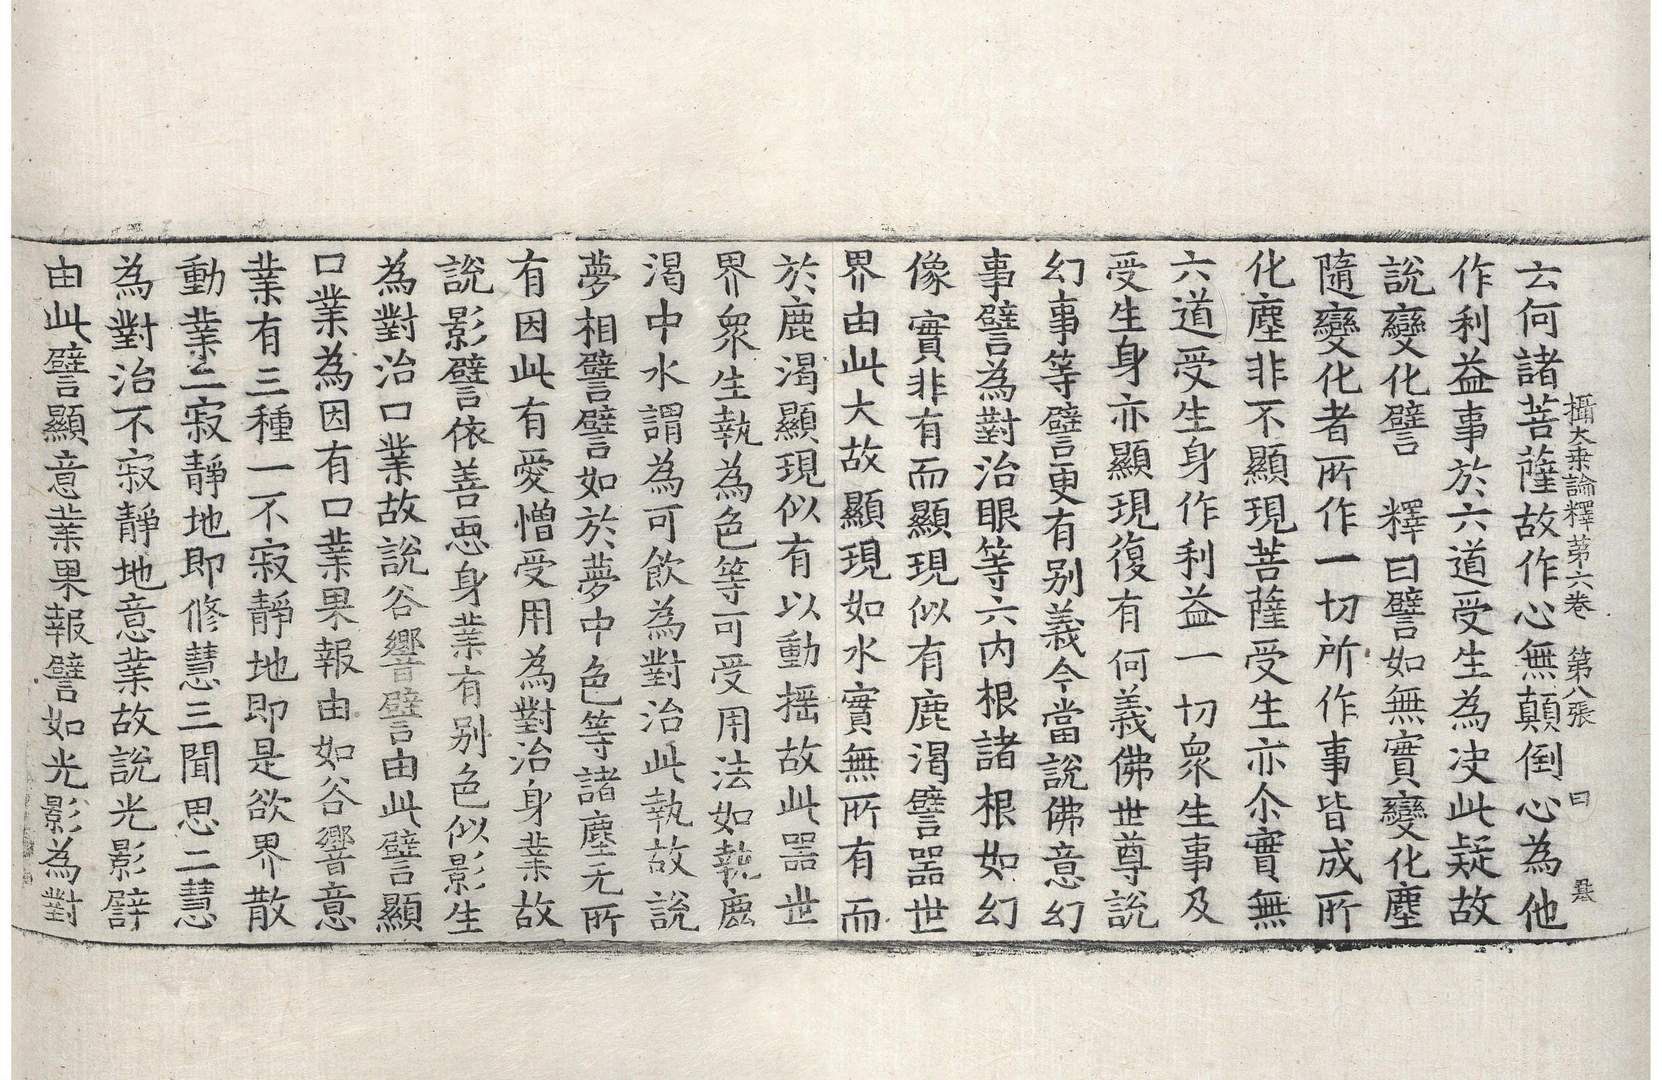 攝大乗論釋第六卷　第八張　曰
云何諸菩薩故作心無顛倒心為他
作利益事於六道受生為决此疑故
說變化譬　釋曰譬如無實變化塵
隨變化者所作一切所作事皆成所
化塵非不顯現菩薩受生亦尒實無
六道受生身作利益一切衆生事及
受生身亦顯現復有何義佛世尊說
幻事等譬更有别義今當說佛意幻
事譬為對治眼等六内根諸根如幻
像實非有而顯現似有鹿渴譬器世
界由此大故顯現如水實無所有而
於鹿渴顯現似有以動揺故此器世
界衆生執為色等可受用法如執鹿
渴中水謂為可飲為對治此執故說
夢相譬譬如於夢中色等諸塵无所
有因此有愛憎受用為對治身業故
說影譬依善惡身業有别色似影生
為對治口業故說谷響譬由此譬顯
口業為因有口業果報由如谷響意
業有三種一不寂靜地即是欲界散
動業二寂靜地即修慧三聞思二慧
為對治不寂靜地意業故說光影譬
由此譬顯意業果報譬如光影為對